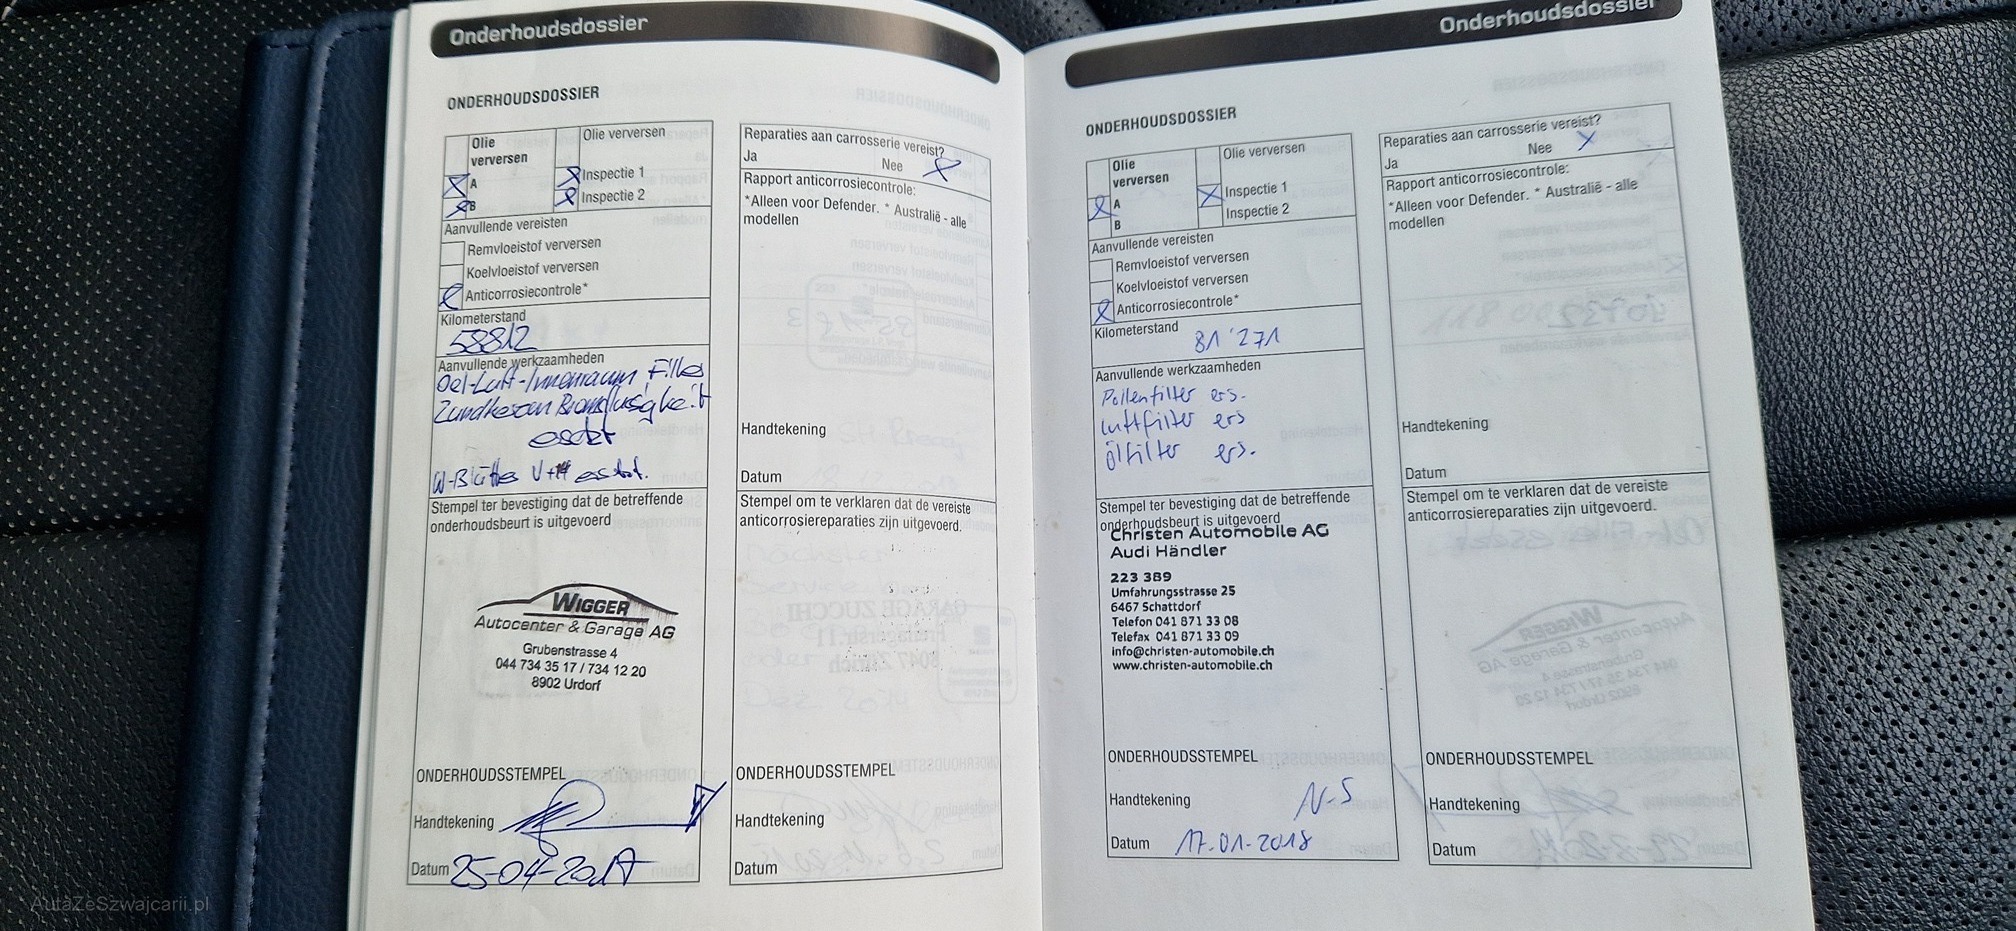 Onderhoudsdossier
ONDERHOUDSDOSSIER
Olie verversen
A
B
Olie verversen
Inspectie 1
Inspectie 2
Aanvullende vereisten
Remvloeistof verversen
Koelvloeistof verversen
Anticorrosiecontrole*
Kilometerstand
58812
Aanvullende werkzaamheden
Oel-Luft-Innenraum Filter
Zündkerzen Bremsflüssigkeit
W-Blätter V+H
Stempel ter bevestiging dat de betreffende
onderhoudsbeurt is uitgevoerd
WIGGER
Autocenter & Garage AG
Grubenstrasse 4
044 734 35 17 / 734 12 20
8902 Urdorf
ONDERHOUDSSTEMPEL
Handtekening
Datum 25-04-2017
Reparaties aan carrosserie vereist?
Ja Nee
Rapport anticorrosiecontrole:
*Alleen voor Defender. * Australië - alle
modellen
Handtekening
Datum
Stempel om te verklaren dat de vereiste
anticorrosiereparaties zijn uitgevoerd.
ONDERHOUDSSTEMPEL
Handtekening
Datum
Onderhoudsdossier
ONDERHOUDSDOSSIER
Olie
verversen
A
B
Olie verversen
Inspectie 1
Inspectie 2
Aanvullende vereisten
Remvloeistof verversen
Koelvloeistof verversen
Anticorrosiecontrole*
Kilometerstand
81'271
Aanvullende werkzaamheden
Pollenfilter ers.
Luftfilter ers
Ölfilter ers.
Stempel ter bevestiging dat de betreffende
onderhoudsbeurt is uitgevoerd
Christen Automobile AG
Audi Händler
223 389
Umfahrungsstrasse 25
6467 Schattdorf
Telefon 041 871 33 08
Telefax 041 871 33 09
info@christen-automobile.ch
www.christen-automobile.ch
ONDERHOUDSSTEMPEL
Handtekening N-S
Datum 17.01.2018
Reparaties aan carrosserie vereist?
Ja Nee
Rapport anticorrosiecontrole:
*Alleen voor Defender. * Australië - alle
modellen
Handtekening
Datum
Stempel om te verklaren dat de vereiste
anticorrosiereparaties zijn uitgevoerd.
ONDERHOUDSSTEMPEL
Handtekening
Datum
AutaZeSzwajcarii.pl